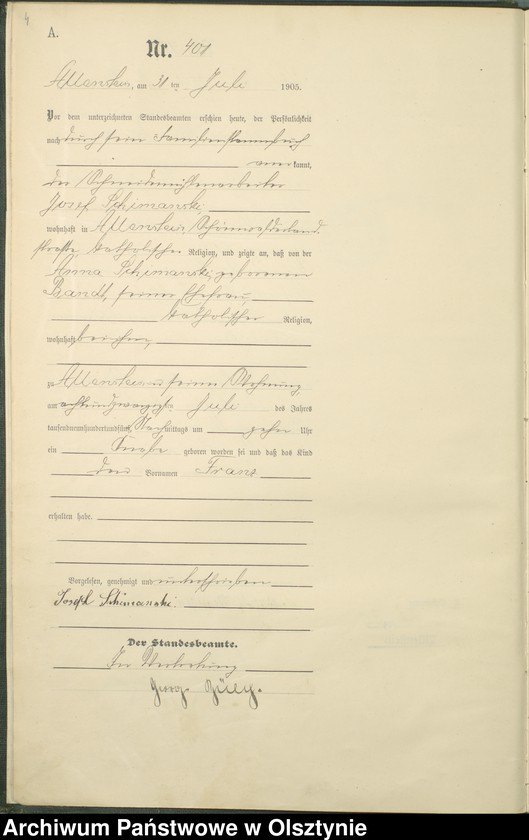 4
A.
Nr. 401
Allenstein, am 31 ten Juli 1905.
Vor dem unterzeichneten Standesbeamten erschien heute, der Persönlichkeit
nach durch sein Familienstammbuch
anerkannt,
der Schneidemühlenarbeiter
Josef Schimanski
wohnhaft in Allenstein,
straße, katholischer Religion, und zeigte an, daß von der
Anna Schimanski, geborenen
Brandt, seiner Ehefrau,
katholischer Religion,
wohnhaft bei ihm,
zu Allenstein in seiner Wohnung,
am achtundzwanzigten Juli des Jahres
tausendneunhundertundfünf, Nachmittags um zehn Uhr
ein Knabe geboren worden sei und daß das Kind
den Vornamen Franz
erhalten habe.
Vorgelesen, genehmigt und unterschrieben
Joseph Schimanski.
Der Standesbeamte.
In Vertretung
Georg
Archiwum Państwowe w Olsztynie